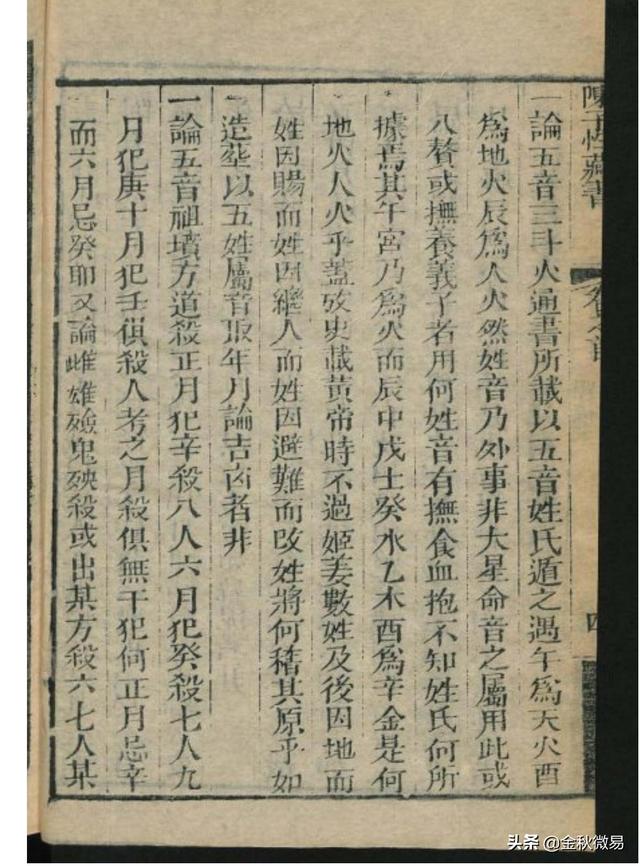 陳子性藏書
四
一論五音三斗火通書所載以五音姓氏遁之遇午爲天火酉
爲地火辰爲人火然姓音乃外事非大星命音之屬用此或
入贅或撫養義子者用何姓音有撫食血抱不知姓氏何所
據焉其午宮乃爲火而辰中戊士癸水乙木酉爲辛金是何
地火人火乎蓋攷史載黃帝時不過姬姜數姓及後因地而
姓因賜而姓因繼人而姓因避難而改姓將何稽其原乎如
造塟以五姓屬音取年月論吉凶者非
一論五音祖墳方道殺正月犯辛殺八人六月犯癸殺七人九
月犯庚十月犯壬俱殺人考之月殺俱無干犯何正月忌辛
而六月忌癸耶又論雌雄殮鬼殃殺或出某方殺六七人某
头条 @金秋微易